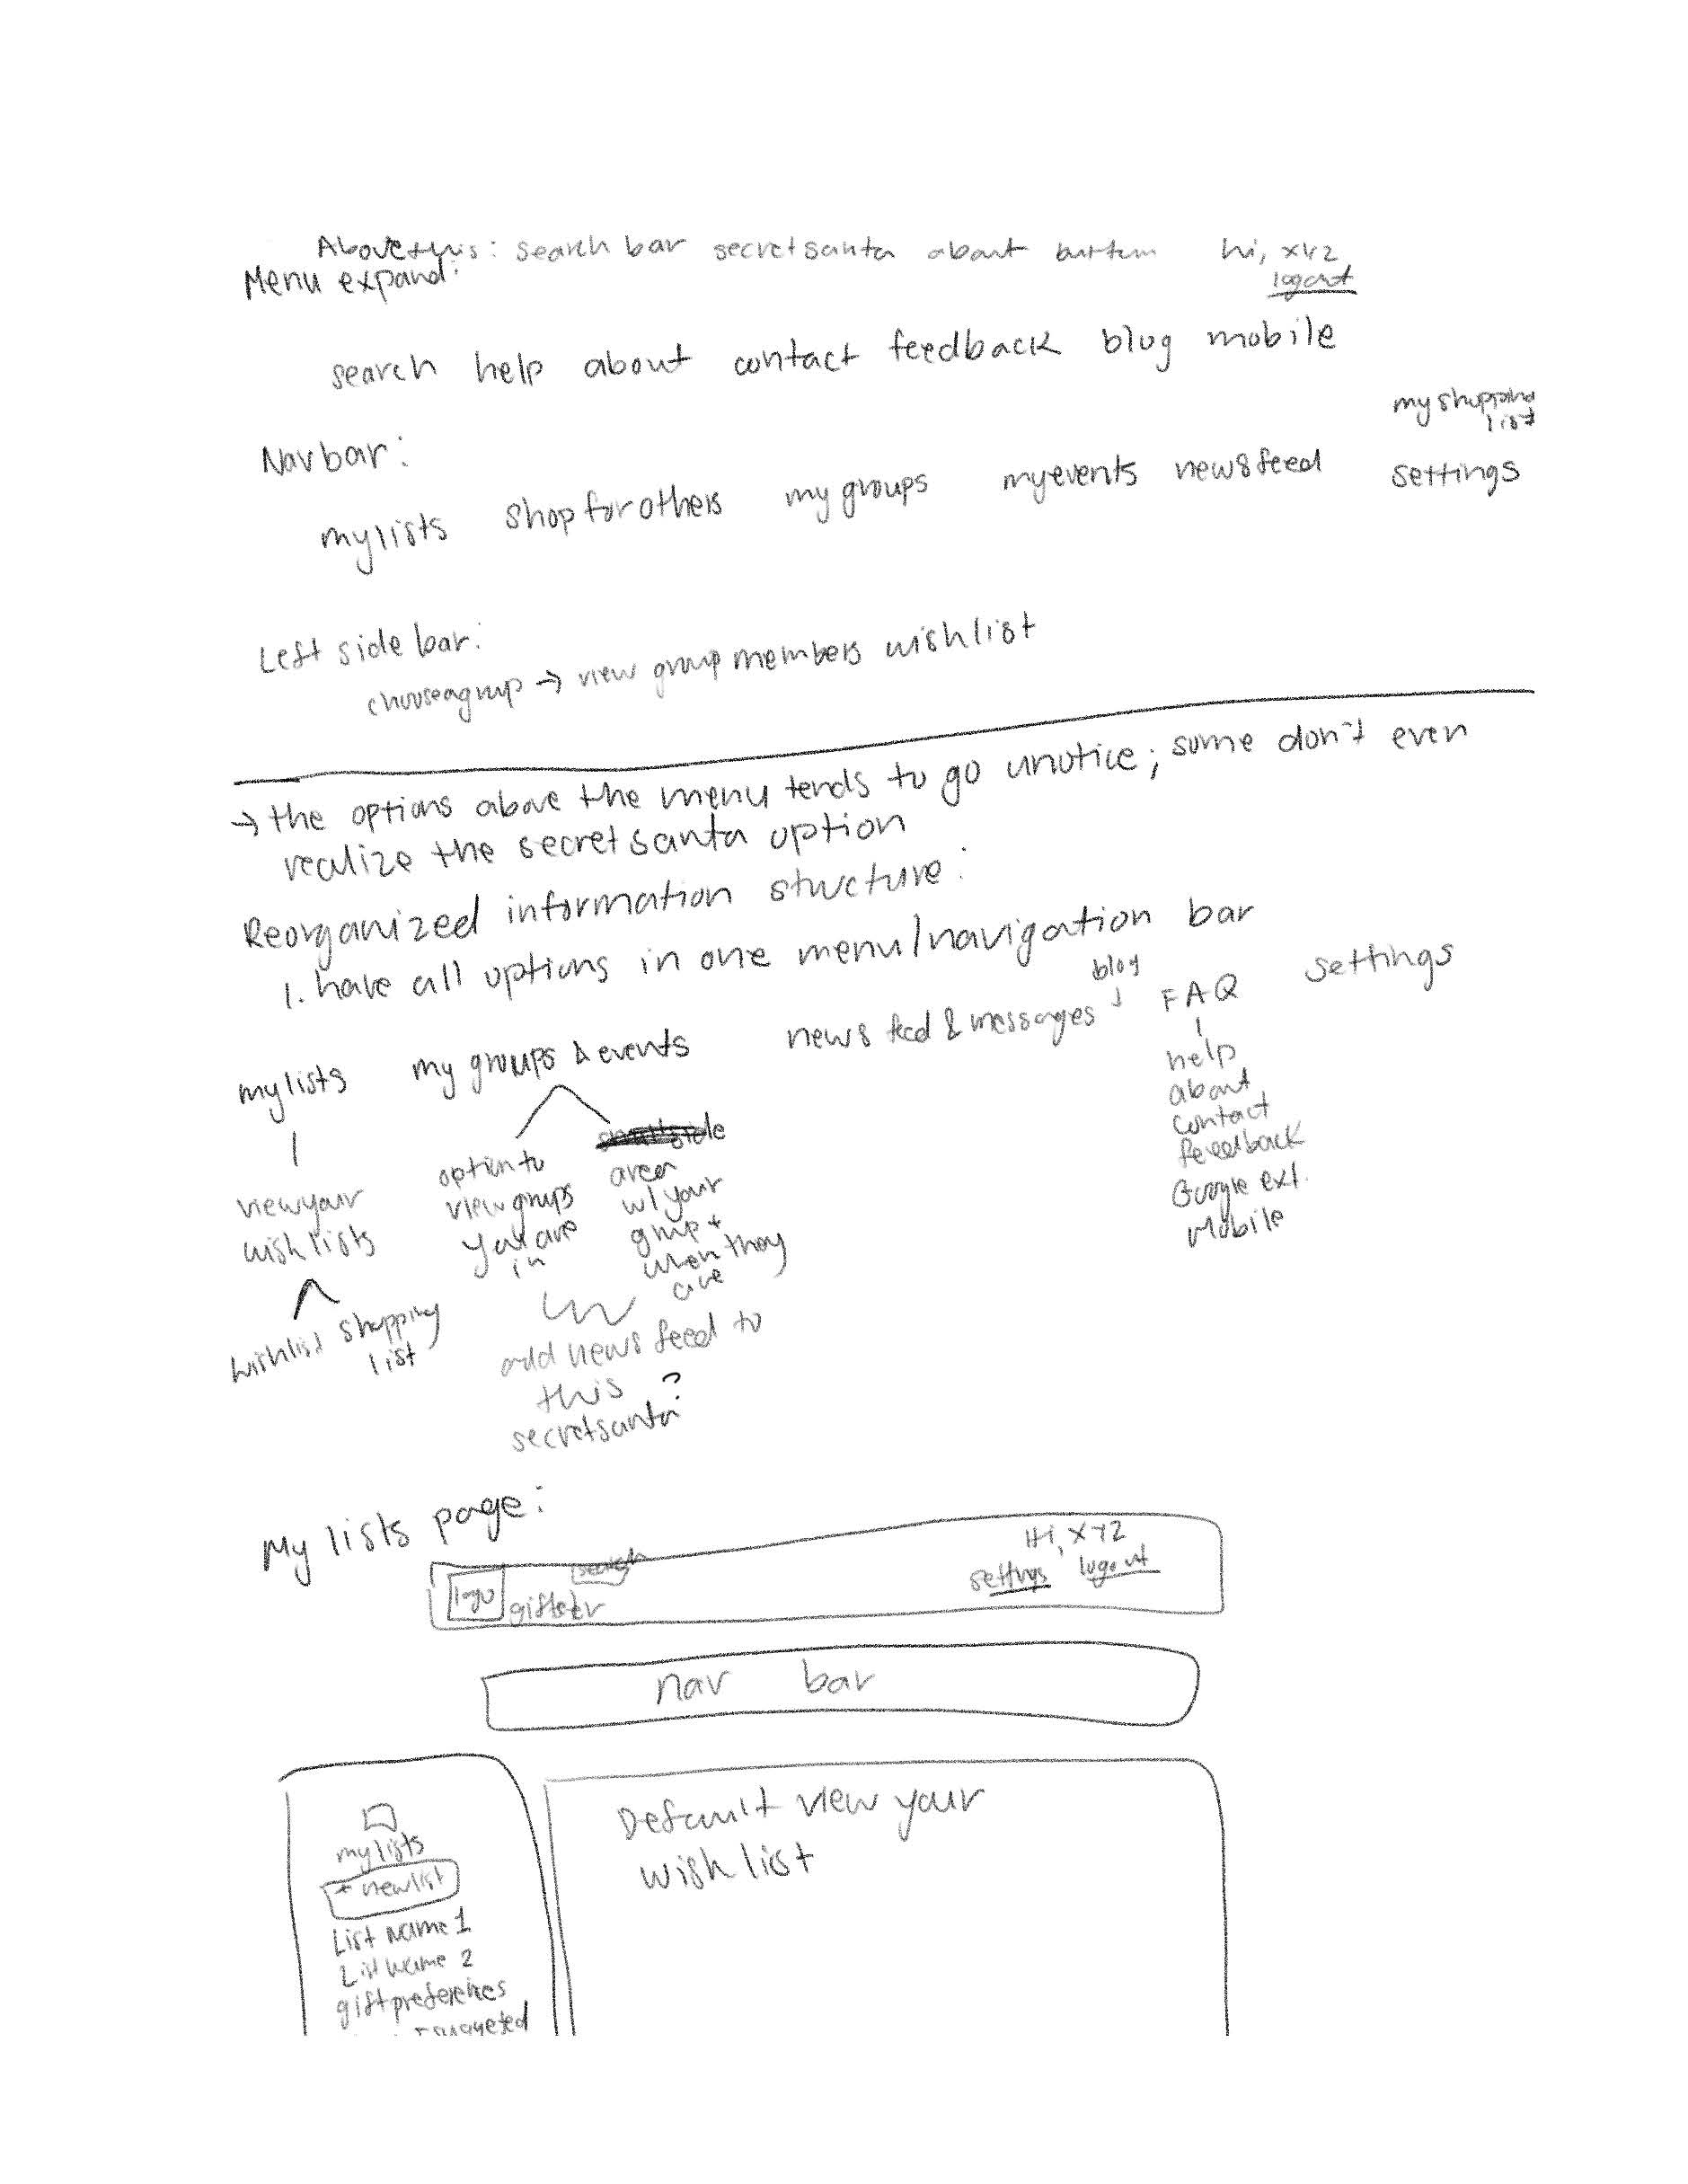 Above this: search bar secret santa about button hi, xyz
logout
Menu expand:
search help about contact feedback blog mobile
my shopping
list
Navbar:
my lists shop for others my groups my events newsfeed settings
Left side bar:
choose a group → view group members wishlist
→ the options above the menu tends to go unotice; some don't even
realize the secret santa option
Reorganized information stucture:
1. have all options in one menu/navigation bar
my lists my groups & events news feed & messages blog FAQ settings
view your
wish lists
wishlist shopping
list
option to
view groups
you are
in
area
w/ your
group +
when they
are
add news feed to
this ?
secret santa
help
about
contact
feedback
Google ext.
Mobile
My lists page:
logo giftster search Hi, XYZ
settings logout
nav bar
my lists
+ new list
List Name 1
List Name 2
gift preferences
Default view your
wish list